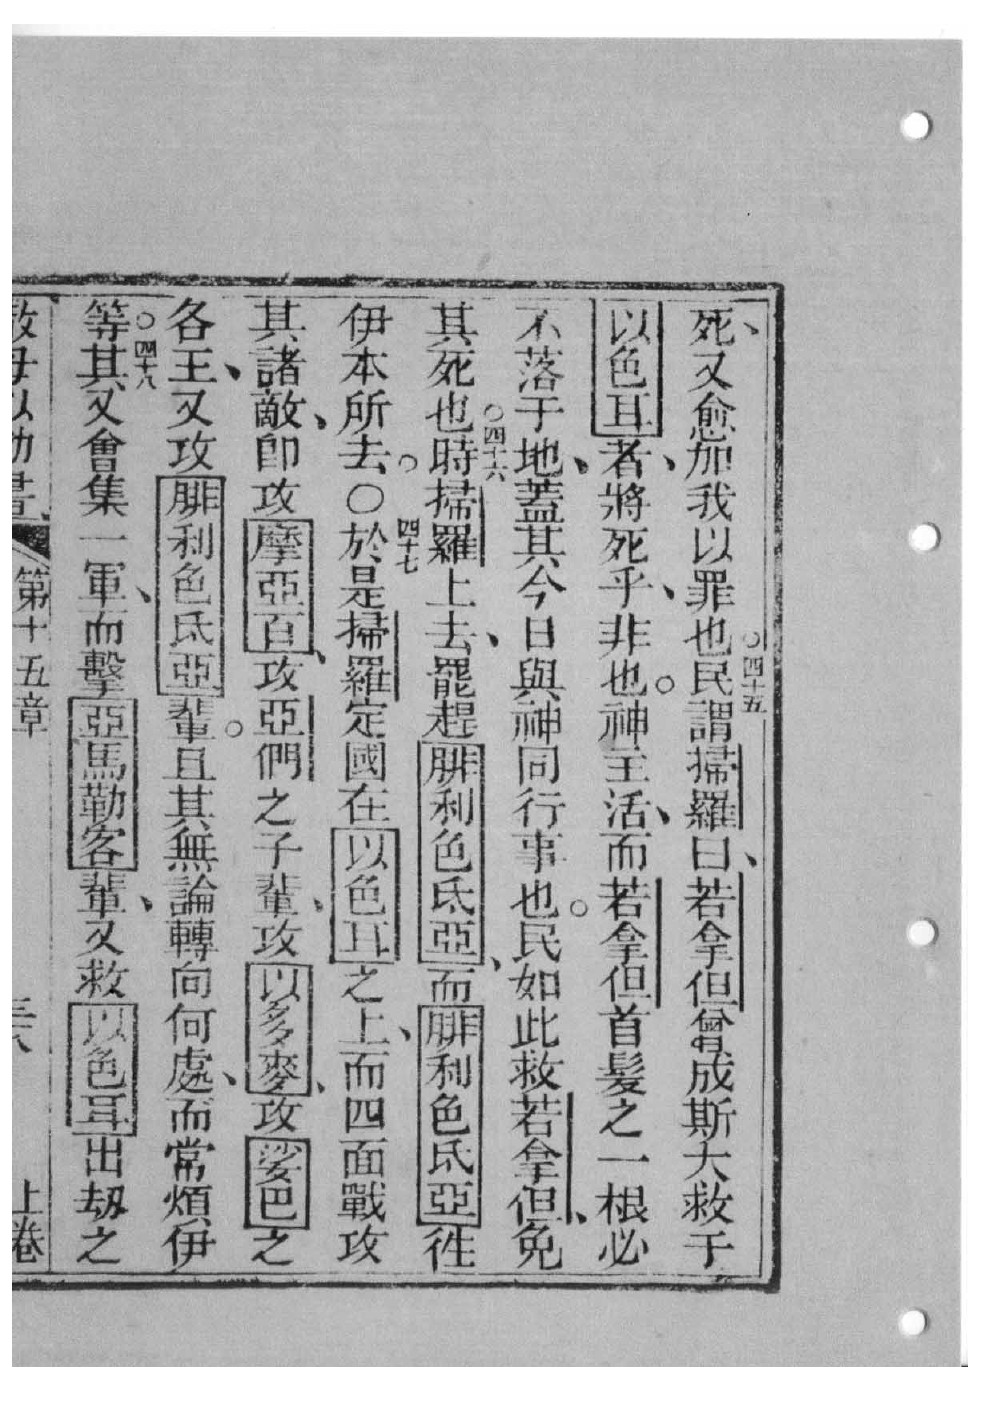 死、又愈加我以罪也○四十五民謂掃羅曰、若拿但曾成斯大救于
以色耳者、將死乎、非也。神主活、而若拿但首髮之一根必
不落于地、蓋其今日與神同行事也。民如此救若拿但、免
其死也○四十六時掃羅上去、罷趕腓利色氐亞、而腓利色氐亞徃
伊本所去。○四十七於是掃羅定國在以色耳之上、而四面戰攻
其諸敵、即攻摩亞百、攻亞們之子輩、攻以多麥、攻娑巴之
各王、又攻腓利色氐亞輩。且其無論轉向何處、而常煩伊
等○四十八其又會集一軍、而擊亞馬勒客輩、又救以色耳出刼之
第十五章
上卷